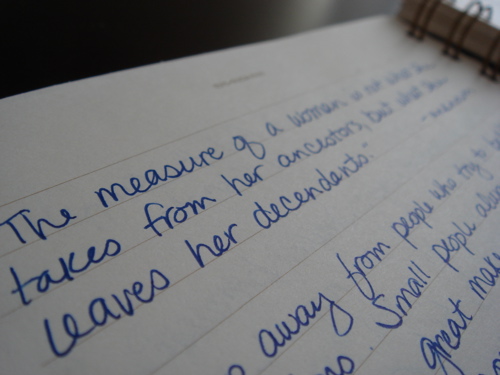 The measure of a woman is not what she
takes from her ancestors, but what she
leaves her decendents."
away from people who try to
. Small people
great